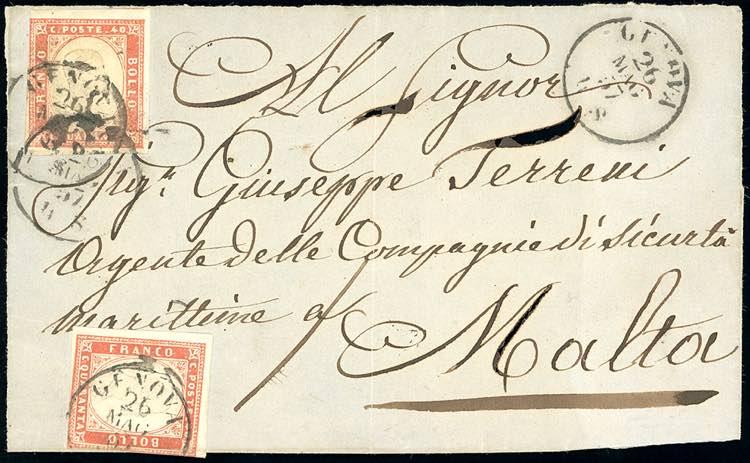 C. POSTE. 40
FRANCO
BOLLO
GENOVA
26
MAG
57
GENOVA
26
MAG
57
Al Signor
Sigr. Giuseppe Terreni
Agente delle Compagnie di Sicurtà
marittime a
Malta
FRANCO
C. POSTE
C. QUARANTA
BOLLO
GENOVA
26
MAG
57